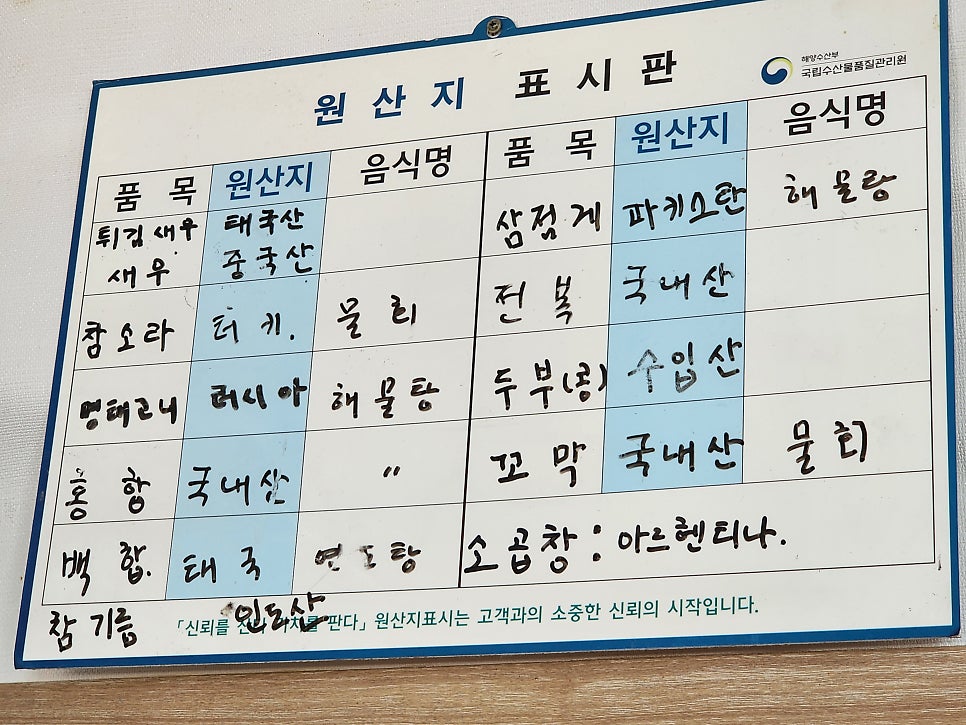 원산지 표시판
해양수산부
국립수산물품질관리원
품 목 원산지 음식명
튀김새우 태국산
새우 중국산
참소라 터키. 물회
명태고니 러시아 해물탕
홍합 국내산 "
백합. 태국 연포탕
참기름 인도산
품 목 원산지 음식명
삼점게 파키스탄 해물탕
전복 국내산
두부(콩) 수입산
꼬막 국내산 물회
소곱창: 아르헨티나.
「신뢰를 판다」 원산지표시는 고객과의 소중한 신뢰의 시작입니다.